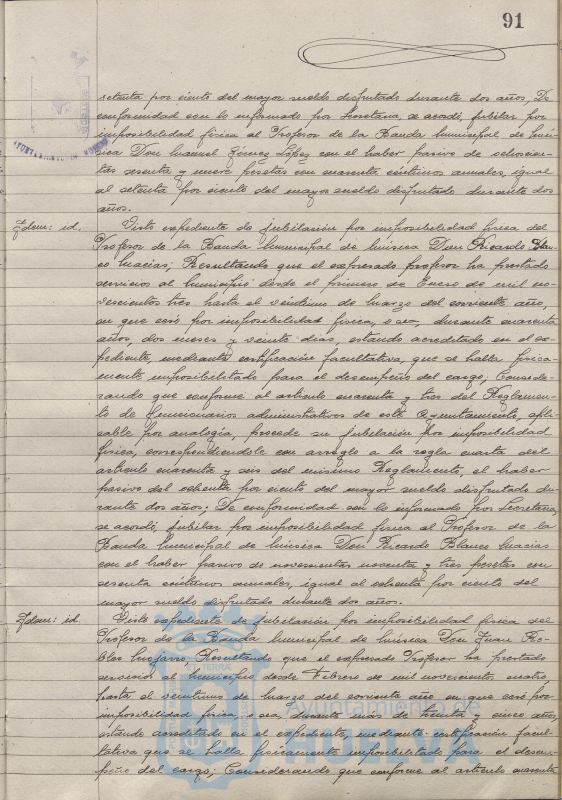 91
setenta por ciento del mayor sueldo disfrutado durante dos años, De
conformidad con lo informado por Secretaria, se acordó, jubilar por
imposibilidad física al Profesor de la Banda Municipal de Mú-
sica Don Manuel Gómez López con el haber pasivo de ochocien-
tas sesenta y nueve pesetas con cuarenta céntimos anuales, igual
al setenta por ciento del mayor sueldo disfrutado durante dos
años.
Ydem: id. Visto expediente de jubilación por imposibilidad física del
Profesor de la Banda Municipal de Música Don Ricardo Blan-
co Macias; Resultando que el expresado profesor ha prestado
servicios al Municipio desde el primero de Enero de mil no-
vescientos tres hasta el veintiuno de Marzo del corriente año,
en que cesó por imposibilidad física, o sea, durante cuarenta
años, dos meses y veinte dias, estando acreditado en el ex-
pediente, mediante certificación facultativa, que se halla física-
mente imposibilitado para el desempeño del cargo; Conside-
rando que conforme al artículo cuarenta y tres del Reglamen-
to de funcionarios administrativos de este Ayuntamiento, apli-
cable por analogía, procede su jubilación por imposibilidad
física, correspondiendole con arreglo a la regla cuarta del
artículo cuarenta y seis del mismo Reglamento, el haber
pasivo del ochenta por ciento del mayor sueldo disfrutado du-
rante dos años; De conformidad con lo informado por Secretaria,
se acordó, jubilar por imposibilidad física al Profesor de la
Banda Municipal de Música Don Ricardo Blanco Macias
con el haber pasivo de novecientas noventa y tres pesetas con
sesenta céntimos anuales, igual al ochenta por ciento del
mayor sueldo disfrutado durante dos años.
Ydem: id. Visto expediente de jubilación por imposibilidad física del
Profesor de la Banda Municipal de Música Don Juan Ro-
bles Resultando que el expresado Profesor ha prestado
servicios al Municipio desde Febrero de mil novecientos cuatro,
hasta el veintiuno de Marzo del corriente año en que cesó por
imposibilidad física, o sea, durante más de treinta y cinco años,
estando acreditado en el expediente, mediante certificación facul-
tativa que se halla físicamente imposibilitado para el desem-
peño del cargo; Considerando que conforme al artículo cuarenta
Ayuntamiento de
HUELVA